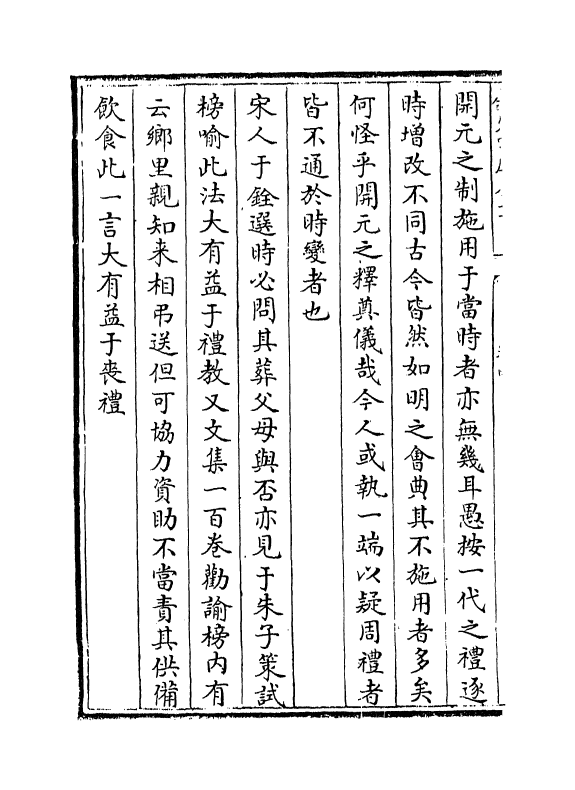 開元之制施用于當時者亦無幾耳愚按一代之禮逐
時增改不同古今皆然如明之會典其不施用者多矣
何怪乎開元之釋奠儀哉今人或執一端以疑周禮者
皆不通於時變者也
宋人于銓選時必問其葬父母與否亦見于朱子策試
榜喻此法大有益于禮教又文集一百卷勸諭榜内有
云鄉里親知来相弔送但可協力資助不當責其供備
飲食此一言大有益于喪禮